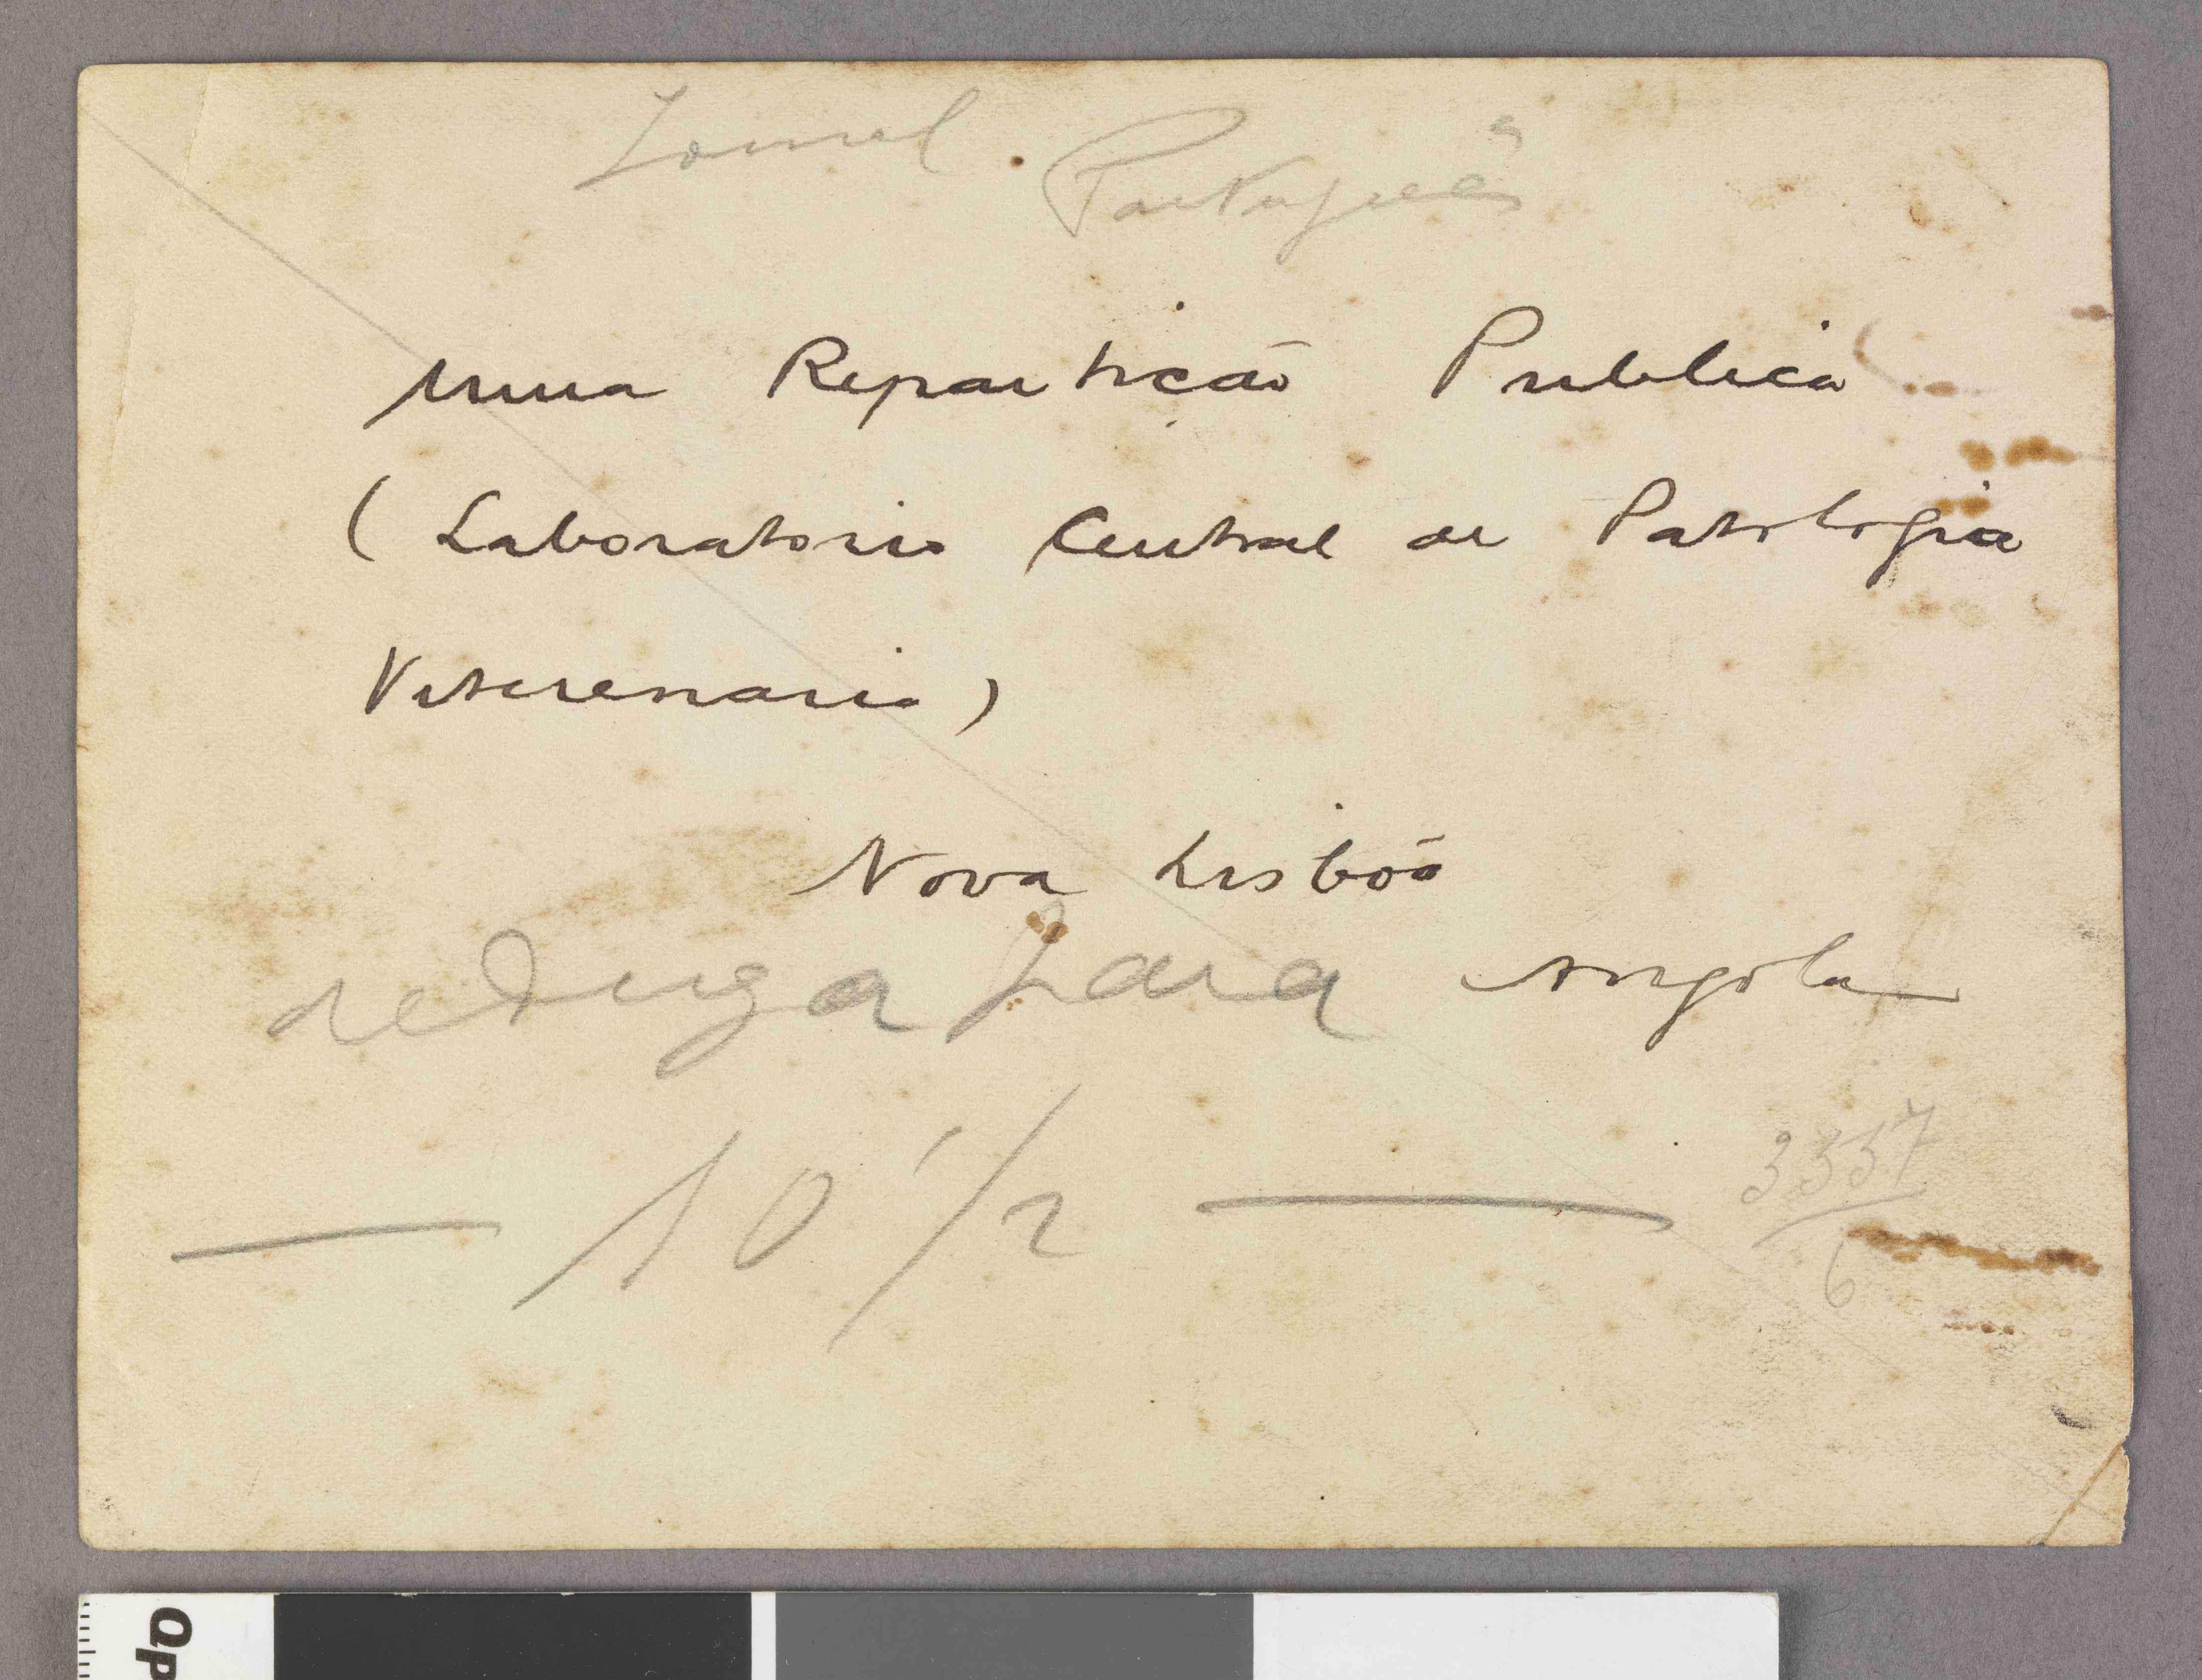 Jornal Português
uma Repartição Publica
(Laboratorio Central de Patologia
Veterenario)
Nova Lisboa
reduza para Angola
— 10 1/2 — 3357
6
Op